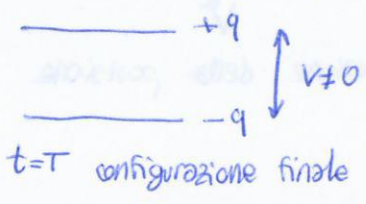 +q
V≠0
-q
t=T configurazione finale